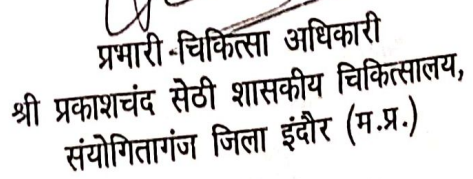 प्रभारी-चिकित्सा अधिकारी
श्री प्रकाशचंद सेठी शासकीय चिकित्सालय,
संयोगितागंज जिला इंदौर (म.प्र.)